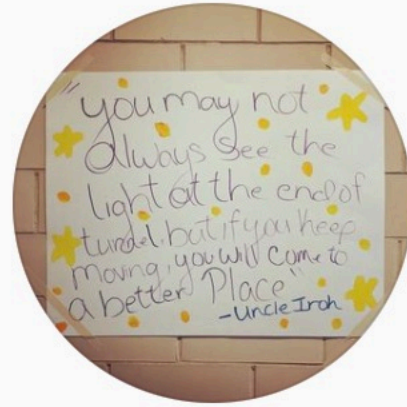 "you may not
always see the
light at the end of
tunnel, but if you keep
moving, you will come to
a better Place"
-Uncle Iroh